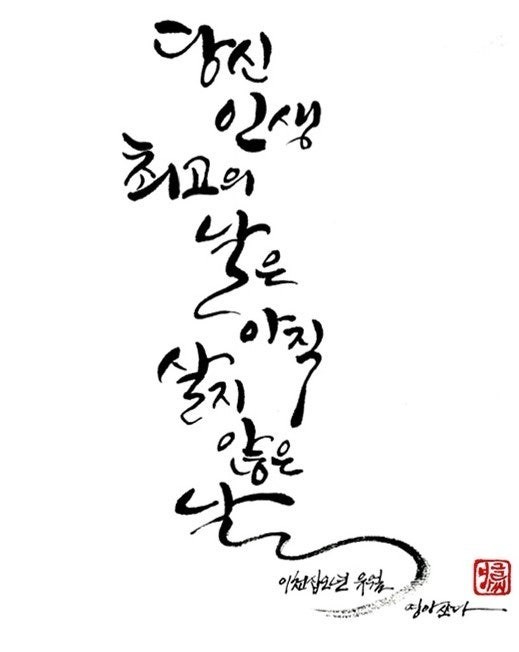 당신
인생
최고의
날은
아직
살지
않은
날
이천십오년 유월